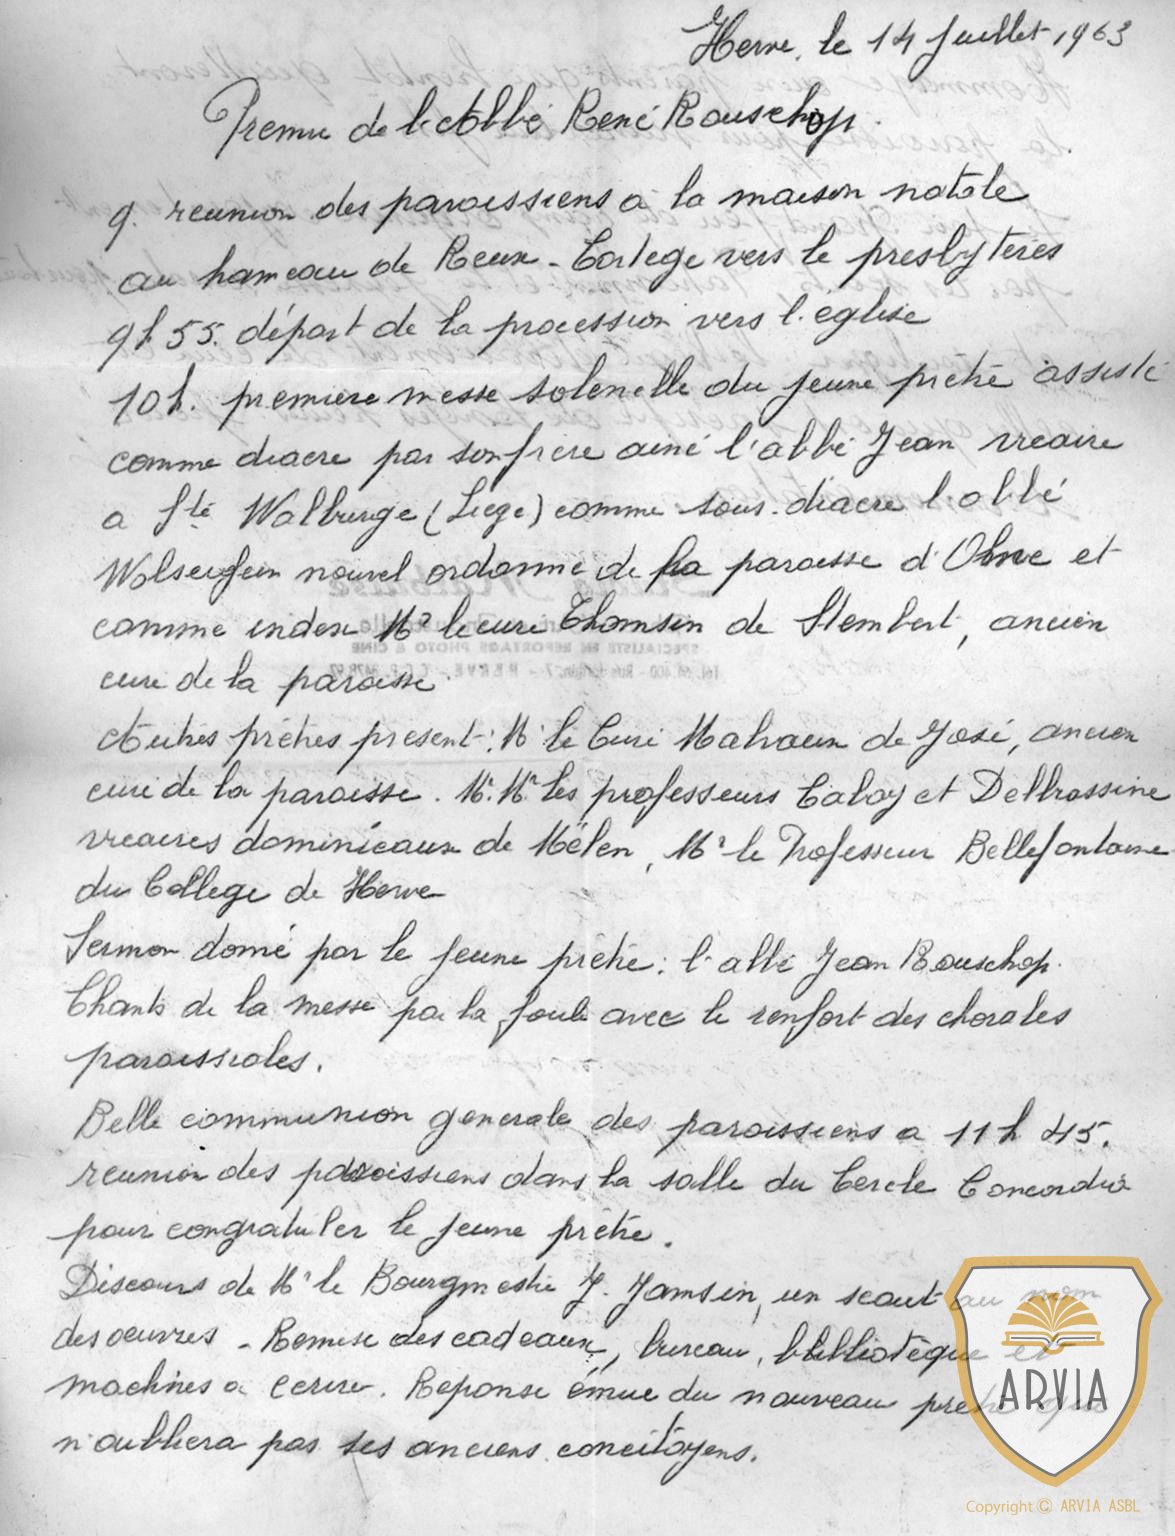 Herve, le 14 Juillet 1963
Premie de l'Abbé René Rouschop.
9. reunion des paroissiens a la maison natale
au hameau de Reux - Cortege vers le presbytères
9h 55. départ de la procession vers l'église
10h. première messe solenelle du jeune prêtre assisté
comme diacre par son frère ainé l'abbé Jean vicaire
a Ste Walburge (Liege) comme sous-diacre l'abbé
nouvel ordonné de la paroisse d'Olne et
comme Mr le curé Thomsin de Stembert, ancien
curé de la paroisse.
Autres prêtres present: Mr le Curé de José, ancien
curé de la paroisse. Mr. Mr les professeurs Caboy et
vicaires dominicaux de Mélen, Mr le Professeur Bellefontaine
du College de Herve
Sermon donné par le jeune prêtre: l'abbé Jean Rouschop.
Chants de la messe par la foule avec le renfort des chorales
paroissiales.
Belle communion generale des paroissiens a 11h 45.
reunion des paroissiens dans la salle du Cercle Concordia
pour congratuler le jeune prêtre.
Discours de Mr le Bourgmestre J. Jamsin, un scout au nom
des oeuvres - Remise des cadeaux, bureau, bibliotèque et
machines a ecrire. Reponse émue du nouveau pretre qui
n'oubliera pas ses anciens concitoyens.
SPECIALISTE EN REPORTAGE PHOTO & CINE
ARVIA
Copyright © ARVIA ASBL